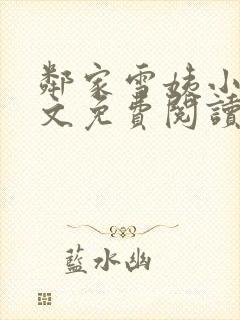 鄰家雪姨小
文免費閱讀
藍水幽